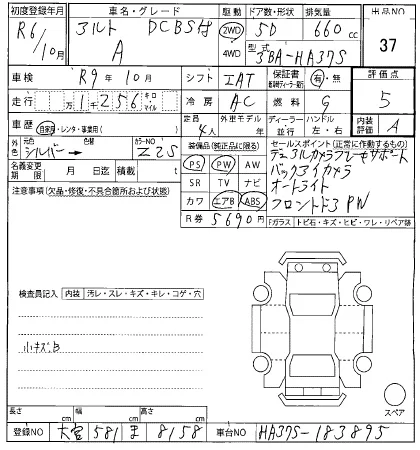 初度登録年月 車名・グレード 駆動 ドア数・形状 排気量 出品NO
R6/10月 アルト DCBS付 A 2WD 4WD 5D 660cc 37
型式 3BA-HA37S
車検 R9年10月 シフト IAT 保証書 有・無 評価点
走行 万1千256 キロ マイル 冷房 AC 燃料 G 5
車歴 自家用・レンタ・事業用( ) 定員 4人 外車モデル 年 ディーラー 並行 ハンドル 左・右 内装評価 A
外色 元色 シルバー→ 色替 カラーNO Z2S
名義変更期限 月 日 積載 t
装備品(純正品に限る)
PS PW AW
SR TV ナビ
カワ エアB ABS
R券 5690円
セールスポイント(正常に作動するもの)
デュアルカメラブレーキサポート
バックアイカメラ
オートライト
フロントドアPW
注意事項(欠品・修復・不具合箇所および状態)
Fガラス トビ石・キズ・ヒビ・ワレ・リペア跡
検査員記入 内装 汚レ・スレ・キズ・キレ・コゲ・穴
小キズ
スペア
長さ cm 幅 cm 高さ cm
登録NO 大宮 581 ま 8158 車台NO HA37S-183895